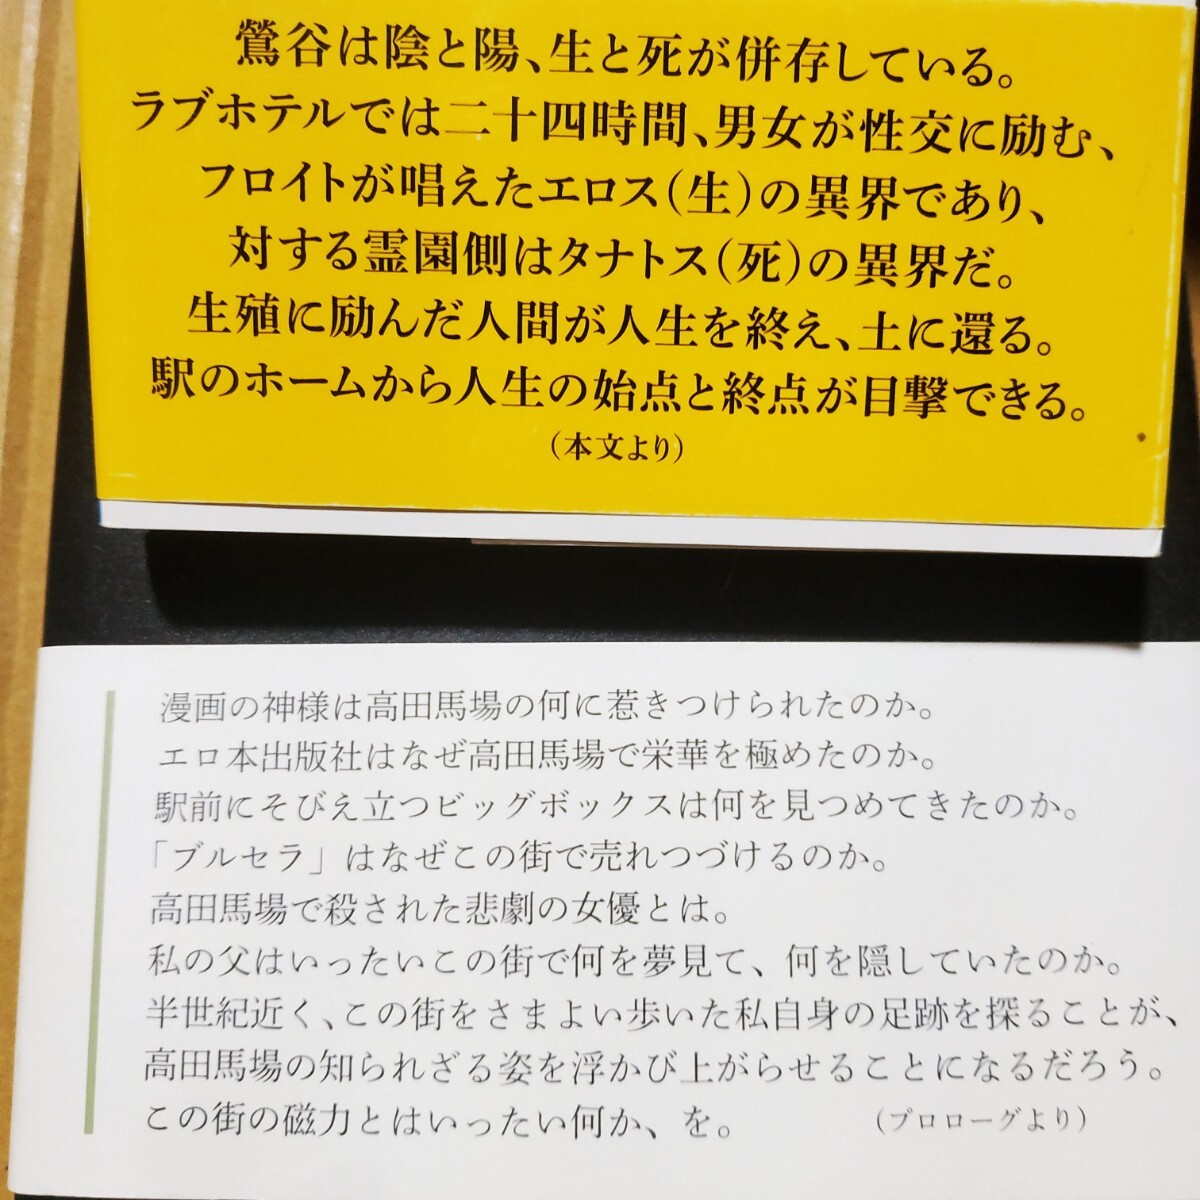 鶯谷は陰と陽、生と死が併存している。
ラブホテルでは二十四時間、男女が性交に励む、
フロイトが唱えたエロス(生)の異界であり、
対する霊園側はタナトス(死)の異界だ。
生殖に励んだ人間が人生を終え、土に還る。
駅のホームから人生の始点と終点が目撃できる。
(本文より)
漫画の神様は高田馬場の何に惹きつけられたのか。
エロ本出版社はなぜ高田馬場で栄華を極めたのか。
駅前にそびえ立つビッグボックスは何を見つめてきたのか。
「ブルセラ」はなぜこの街で売れつづけるのか。
高田馬場で殺された悲劇の女優とは。
私の父はいったいこの街で何を夢見て、何を隠していたのか。
半世紀近く、この街をさまよい歩いた私自身の足跡を探ることが、
高田馬場の知られざる姿を浮かび上がらせることになるだろう。
この街の磁力とはいったい何か、を。
(プロローグより)